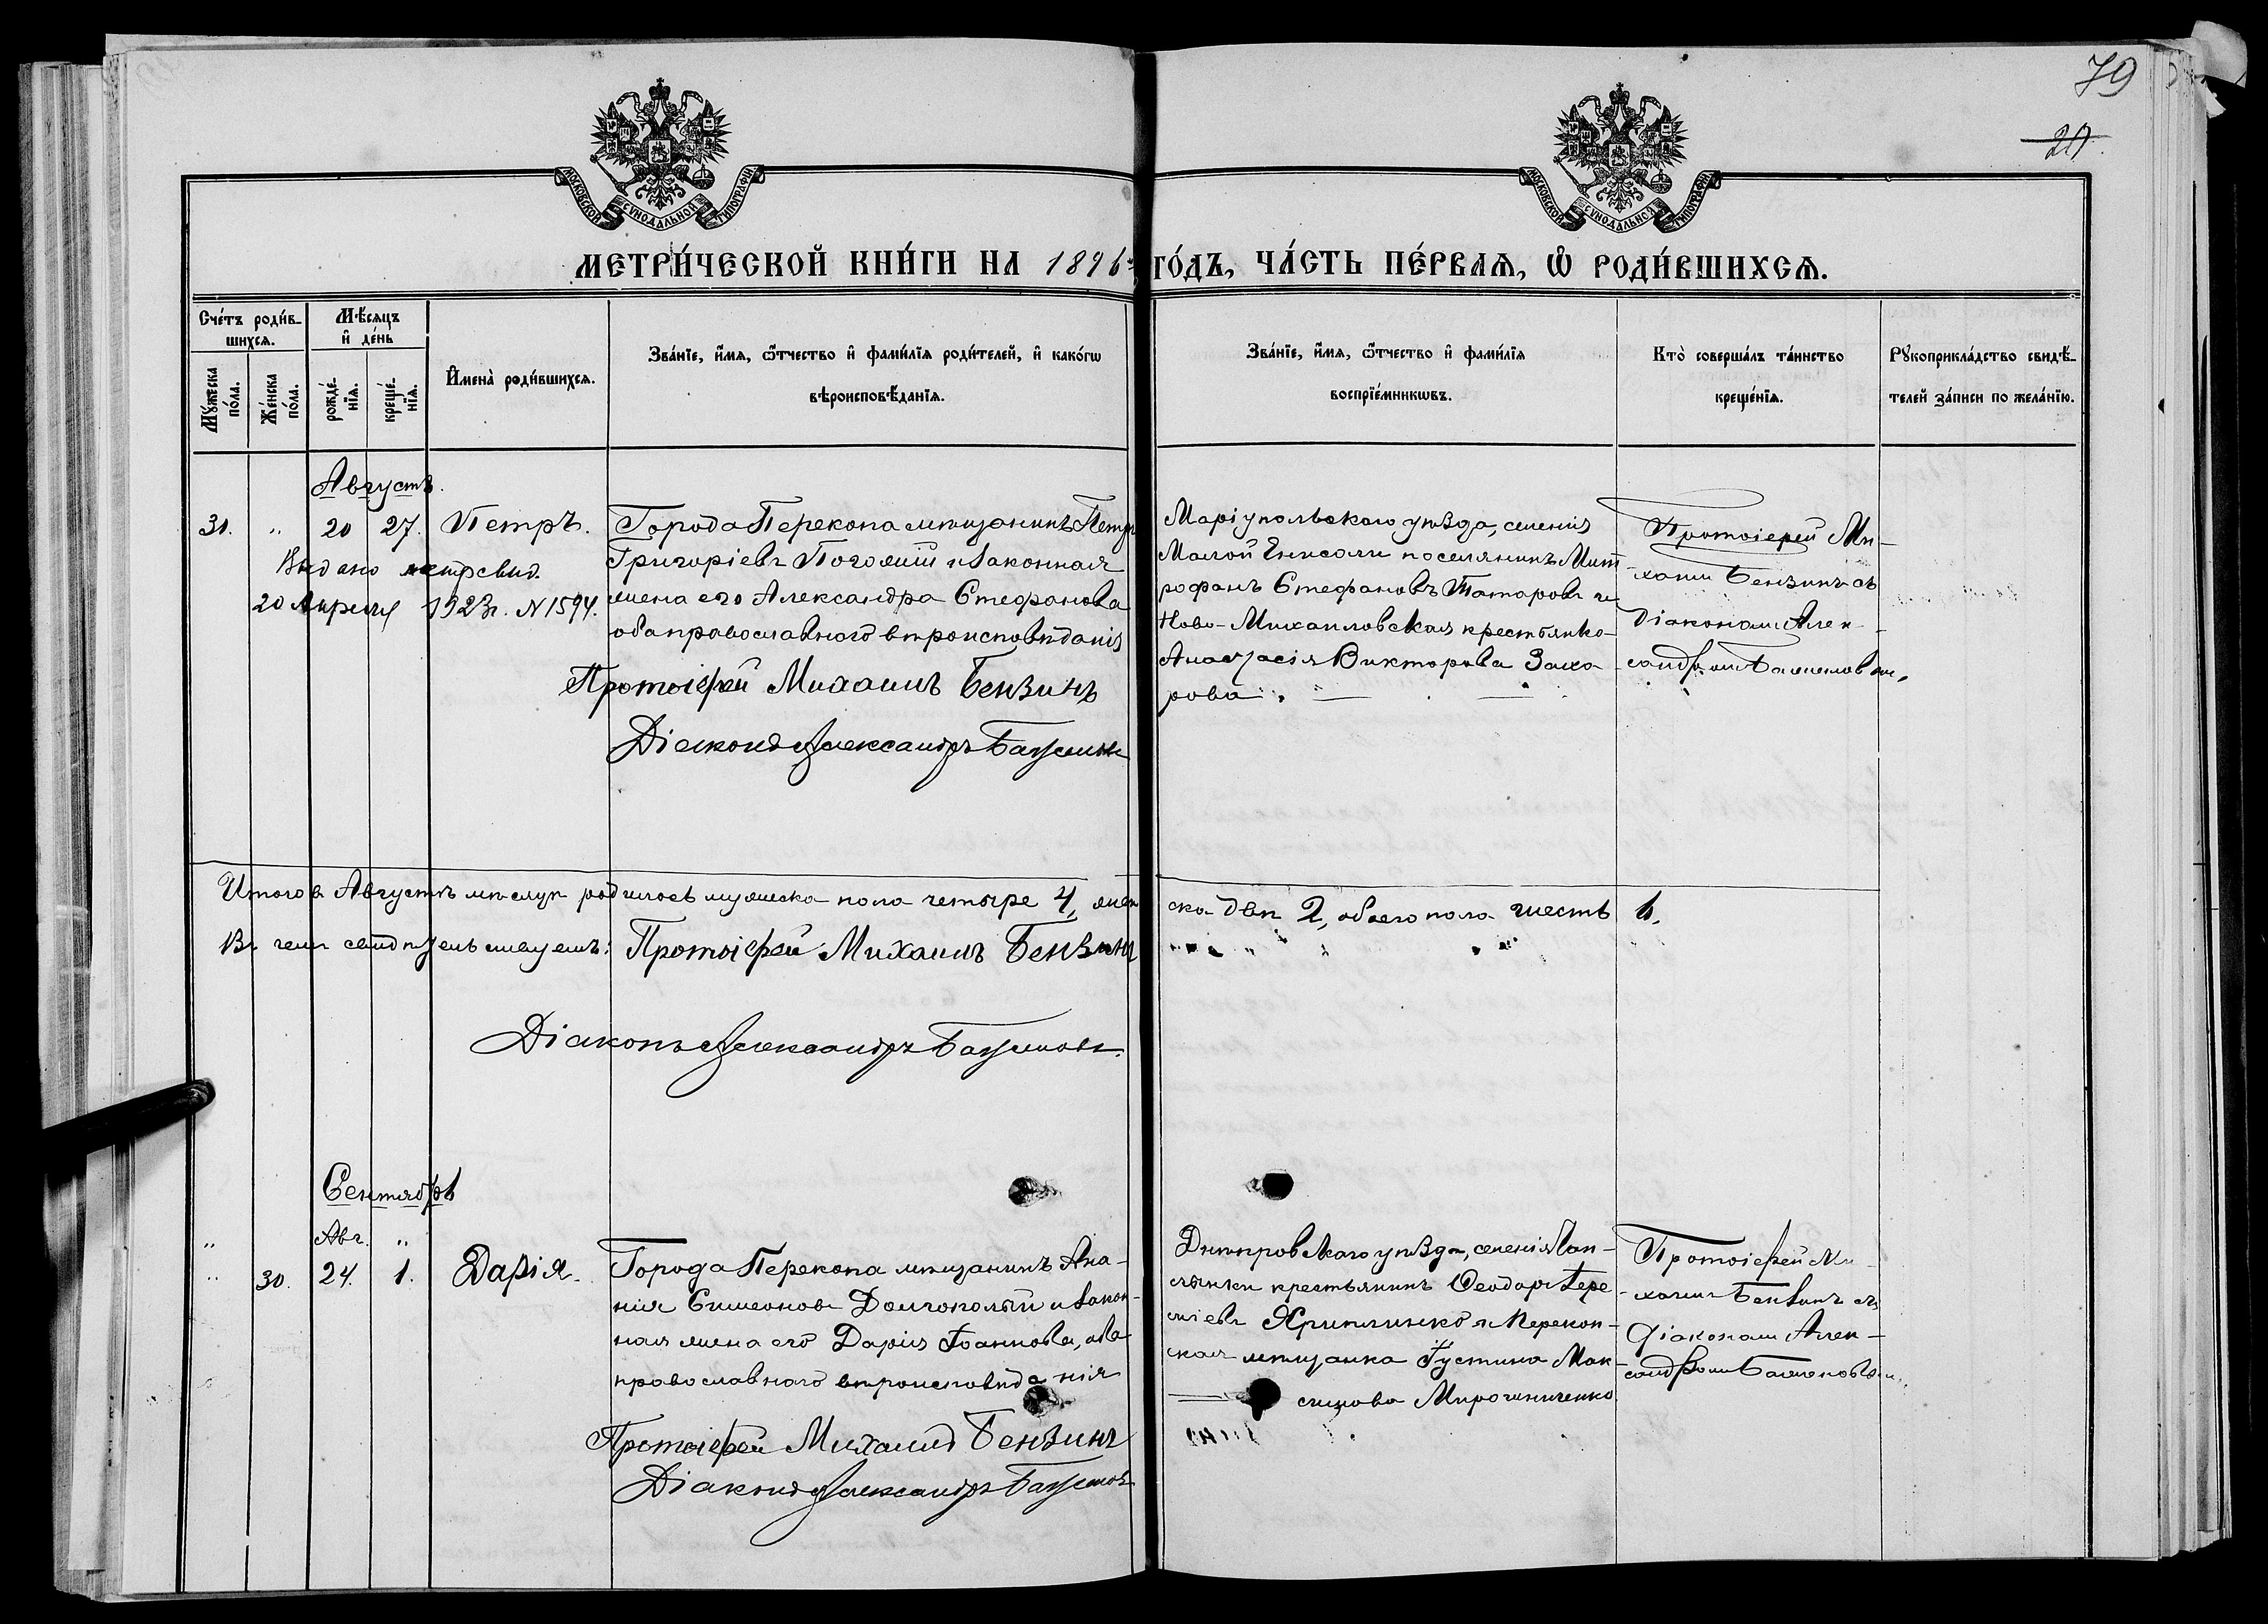 79
20
МОСКОВСКОЙ СѴНОДАЛЬНОЙ ТИПОГРАФІИ
МОСКОВСКОЙ СѴНОДАЛЬНОЙ ТИПОГРАФІИ
МЕТРИ́ЧЕСКОЙ КНИ́ГИ НА 1896й ГО́ДЪ, ЧА́СТЬ ПЕ́РВАѦ, Ѡ҆ РОДИ́ВШИХСѦ.
Сче́тъ роди́в-
шихсѧ.
Мꙋ́жеска по́ла.
Же́нска по́ла.
Мѣ́сѧцъ
и҆ де́нь
рожде́-
нїѧ.
креще́-
нїѧ.
И҆мена̀ роди́вшихсѧ.
Зва́нїе, и҆́мѧ, ѻ҆́тчество и҆ фами́лїѧ роди́телей, и҆ како́гѡ
вѣроисповѣ́данїѧ.
Зва́нїе, и҆́мѧ, ѻ҆́тчество и҆ фами́лїѧ
воспрїе́мникѡвъ.
Кто̀ соверша́лъ та́инство
креще́нїѧ.
Рꙋкоприкла́дство свидѣ́-
телей за́писи по жела́нїю.
Августъ.
31. „ 20 27. Петръ.
Выдано метр свид.
20 Апреля 1923г. N 1594.
Города Перекопа мѣщанинъ Петръ
Григоріевъ и законная
жена его Александра Стефанова
оба православнаго вѣроисповѣданія
Протоіерей Михаилъ Бензинъ
Діаконъ Александръ
Маріупольскаго уѣзда, селенія
Малой Енисали поселянинъ Мит
рофанъ Стефановъ Татаровъ и
Ново-Михаиловская крестьянка
Анастасія Викторова Заха-
рова.
Протоіерей Ми-
хаилъ Бензинъ съ
діакономъ Алек-
сандромъ
Итого въ Августѣ мѣсяцѣ родилось мужеска пола четыре 4, жен
ска двѣ 2, обоего пола шесть 6.
Въ чемъ свидѣтельствуемъ: Протоіерей Михаилъ Бензинъ
Діаконъ Александръ
Сентябрь
„ Авг. „
„ 30. 24. 1. Дарія.
Города Перекопа мѣщанинъ Ана-
нія Симеоновъ Долгополый и закон-
ная жена его Дарія Іоаннова, оба
православнаго вѣроисповѣданія
Протоіерей Михаилъ Бензинъ
Діаконъ Александръ
Днѣпровскаго уѣзда, селенія Чап-
лынки крестьянинъ Ѳеодоръ Іере
міевъ и Перекоп-
ская мѣщанка Іустина Мак-
симова Мирошниченко
Протоіерей Ми-
хаилъ Бензинъ съ
Діакономъ Алек-
сандромъ